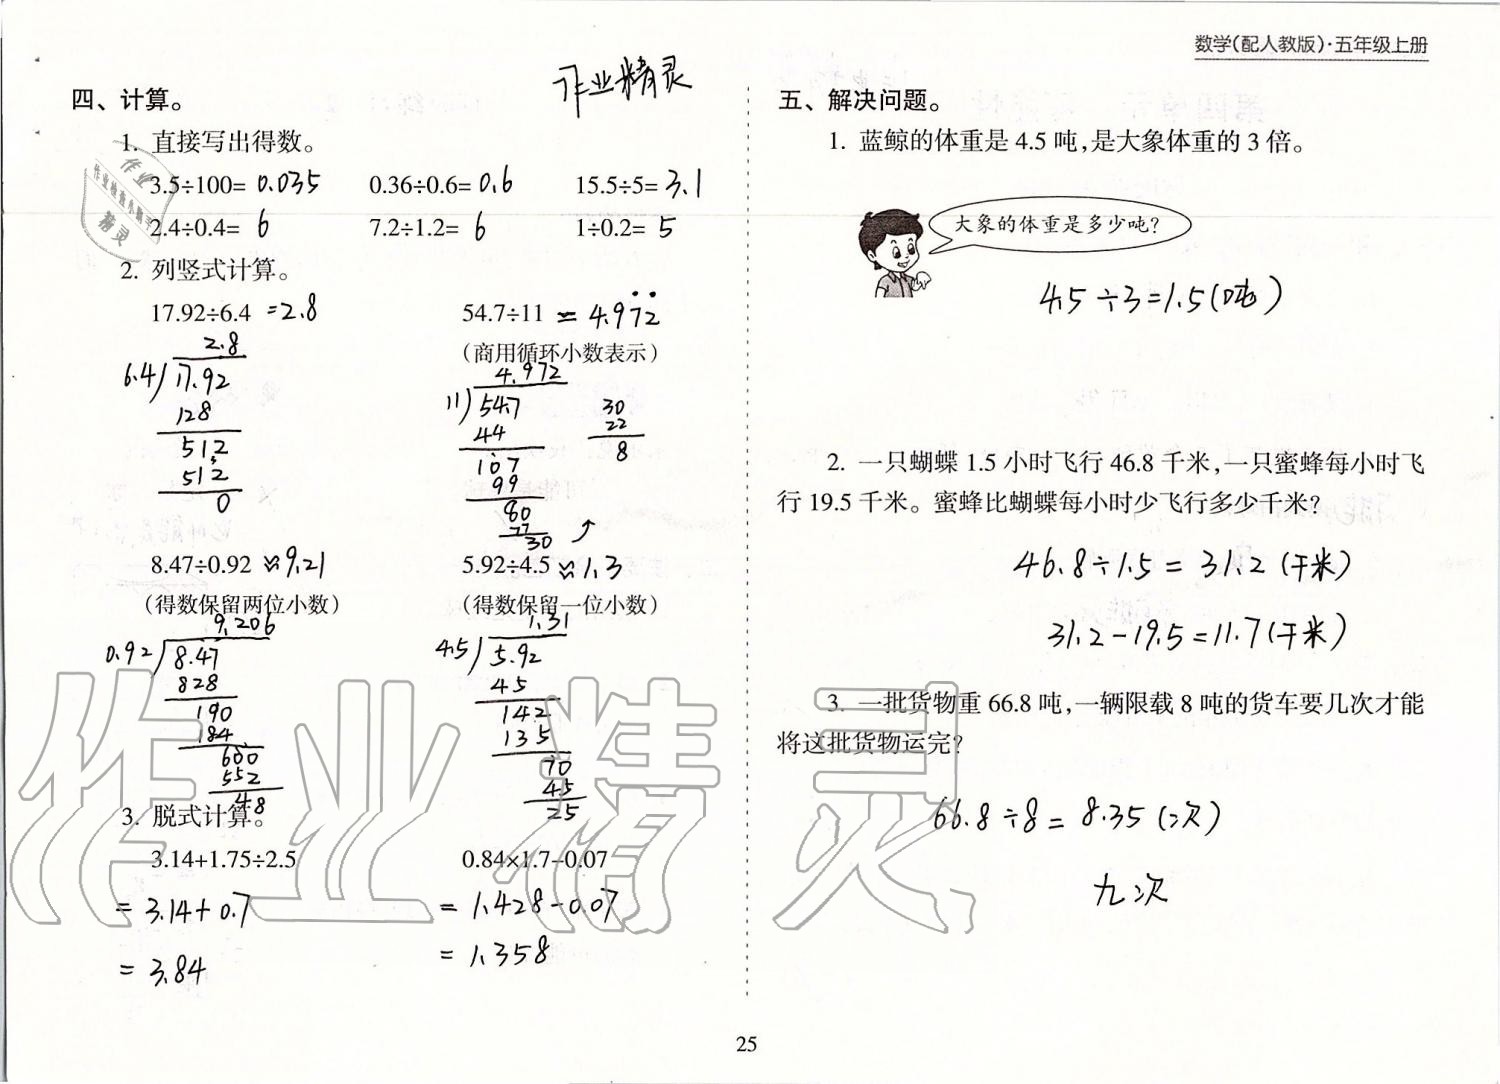 数学(配人教版)·五年级上册
作业精灵
四、计算。
1. 直接写出得数。
3.5÷100= 0.035 0.36÷0.6= 0.6 15.5÷5= 3.1
2.4÷0.4= 6 7.2÷1.2= 6 1÷0.2= 5
2. 列竖式计算。
17.92÷6.4 =2.8 54.7÷11 = 4.97̇2̇
(商用循环小数表示)
2.8
6.4 17.92
128
512
512
0
4.972
11 54.7
44
107
99
80
77
30
30
22
8
8.47÷0.92 ≈9.21 5.92÷4.5 ≈1.3
(得数保留两位小数) (得数保留一位小数)
9.206
0.92 8.47
828
190
184
600
552
48
1.31
4.5 5.92
45
142
135
70
45
25
3. 脱式计算。
3.14+1.75÷2.5 0.84×1.7-0.07
= 3.14+0.7 = 1.428-0.07
= 3.84 = 1.358
五、解决问题。
1. 蓝鲸的体重是 4.5 吨,是大象体重的 3 倍。
大象的体重是多少吨?
4.5÷3=1.5(吨)
2. 一只蝴蝶 1.5 小时飞行 46.8 千米,一只蜜蜂每小时飞
行 19.5 千米。蜜蜂比蝴蝶每小时少飞行多少千米?
46.8÷1.5= 31.2(千米)
31.2-19.5=11.7(千米)
3. 一批货物重 66.8 吨,一辆限载 8 吨的货车要几次才能
将这批货物运完?
66.8÷8= 8.35(次)
九次
作业精灵
25